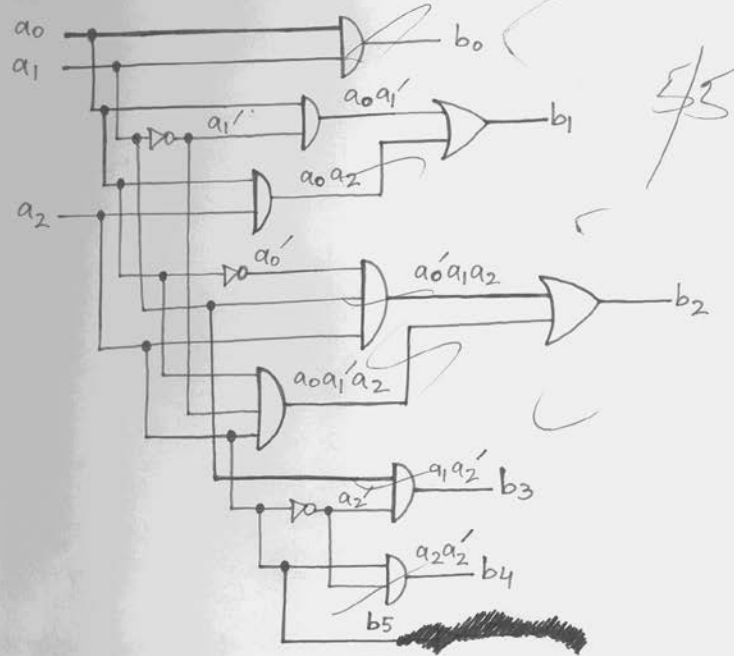 a0
b0
a1
a0a1'
a1'
b1
a0a2
a2
a0'
a0'a1a2
b2
a0a1'a2
a1a2'
b3
a2'
a2a2'
b4
b5